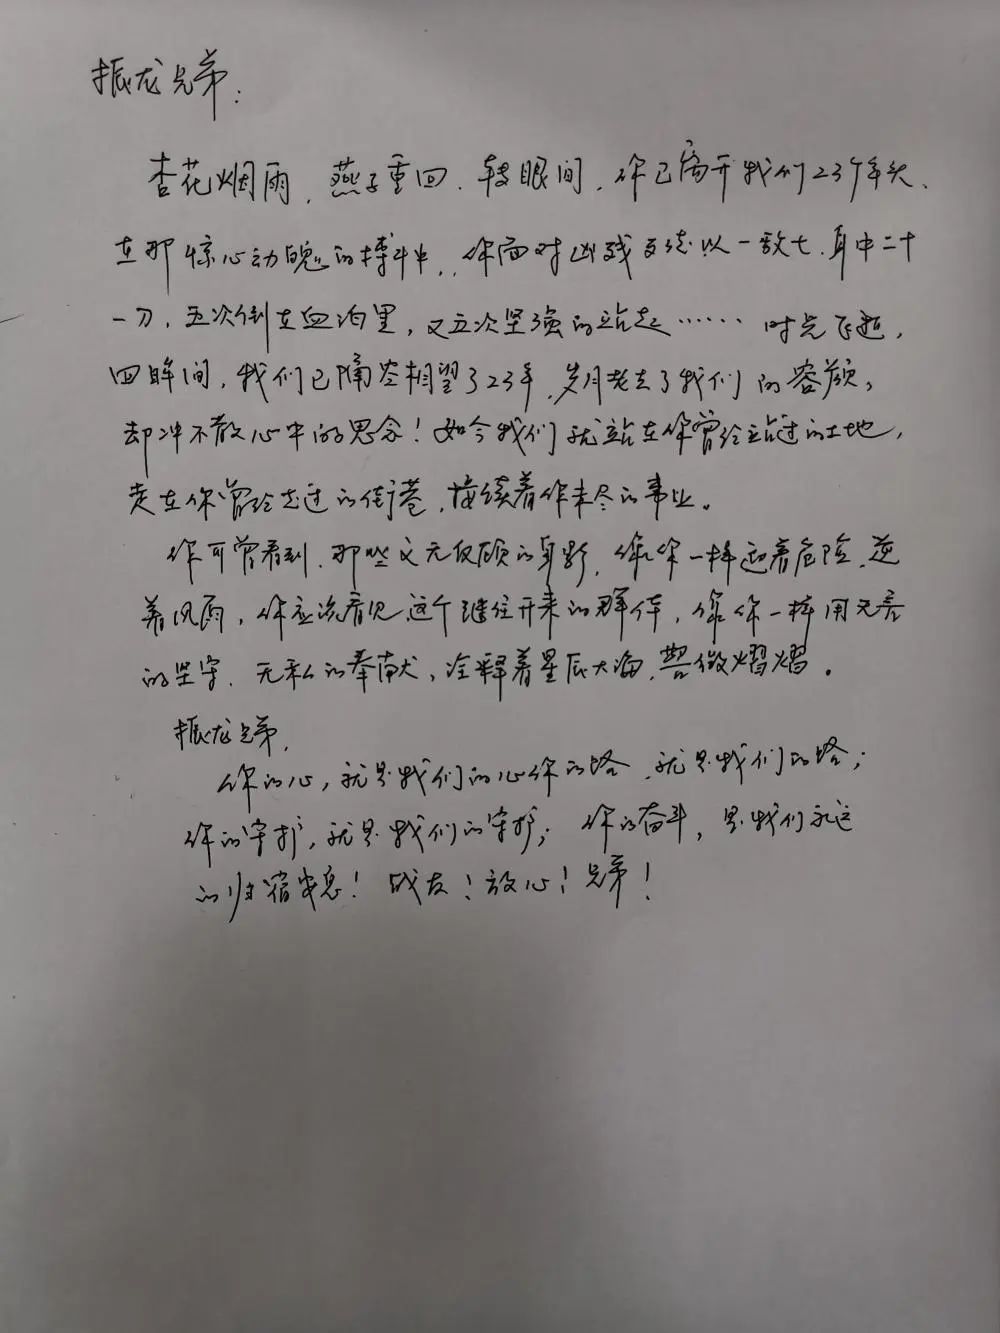 振龙兄弟:
杏花烟雨,燕子重回,转眼间,你已离开我们23个年头、
在那惊心动魄的搏斗中,你面对凶残歹徒以一敌七,身中二十
一刀,五次倒在血泊里,又五次坚强的站起……时光飞逝,
回眸间,我们已隔空相望了23年,岁月老去了我们的容颜,
却冲不散心中的思念!如今我们就站在你曾经站过的土地,
走在你曾经走过的街巷,接续着你未尽的事业。
你可曾看到,那些义无反顾的身影,像你一样迎着危险,逆
着风雨,你应该看见,这个继往开来的群体,像你一样用无吝
的坚守、无私的奉献,诠释着星辰大海,警徽熠熠。
振龙兄弟,
你的心,就是我们的心你的塔,就是我们的塔;
你的守护,就是我们的守护;你的奋斗,是我们永远
的归宿!战友!放心!兄弟!